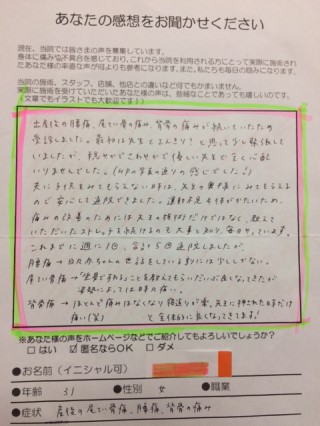 あなたの感想をお聞かせください
現在、当院では皆さまの声を募集しています。
身体に痛みや不具合を感じており、これから当院を利用される方にとって実際に施術され
たあなた様の率直な声が何よりも参考になります。また、私たちも毎日の励みになります。
当院の施術、スタッフ、店舗、他店との違いなど何でもかまいません。
実際に施術を受けていただいたあなた様の声は、些細なことであっても嬉しいのです。
（文章でもイラストでも大歓迎です♪）
出産後の腰痛、尾てい骨の痛み、背骨の痛みが続いていたため
受診しました。最初は先生とまんきり！と思って少し緊張して
いましたが、穏やかでさわやかで優しい先生で全く心配
いりませんでした。（HPの写真の通りの感じでした！）
夫に子供をみてもらえない日は、先生の奥様にみてもらえる
ので安心して通院できました。運動不足も体がかたいため、
痛みの改善のためには先生の施術だけではなく、教えて
いただいたストレッチを続けるのも大事と知り、毎日やっています。
これまでに週に1回、合計5回通院しましたが、
腰痛→日々赤ちゃんの世話をしている割には少ししかない。
尾てい骨痛→
姿勢によっては時々痛い。
背骨痛→ほとんど痛みはなくなり寝返りが楽。先生に押された時だけ
痛い(笑) と全体的に良くなってきてます！
※あなた様の声をホームページなどでご紹介してもよろしいでしょうか？
□はい ☑匿名ならOK □ダメ
●お名前（イニシャル可）
●年齢 31 ●性別 女 ●職業
●症状 産後の尾てい骨痛、腰痛、背骨の痛み